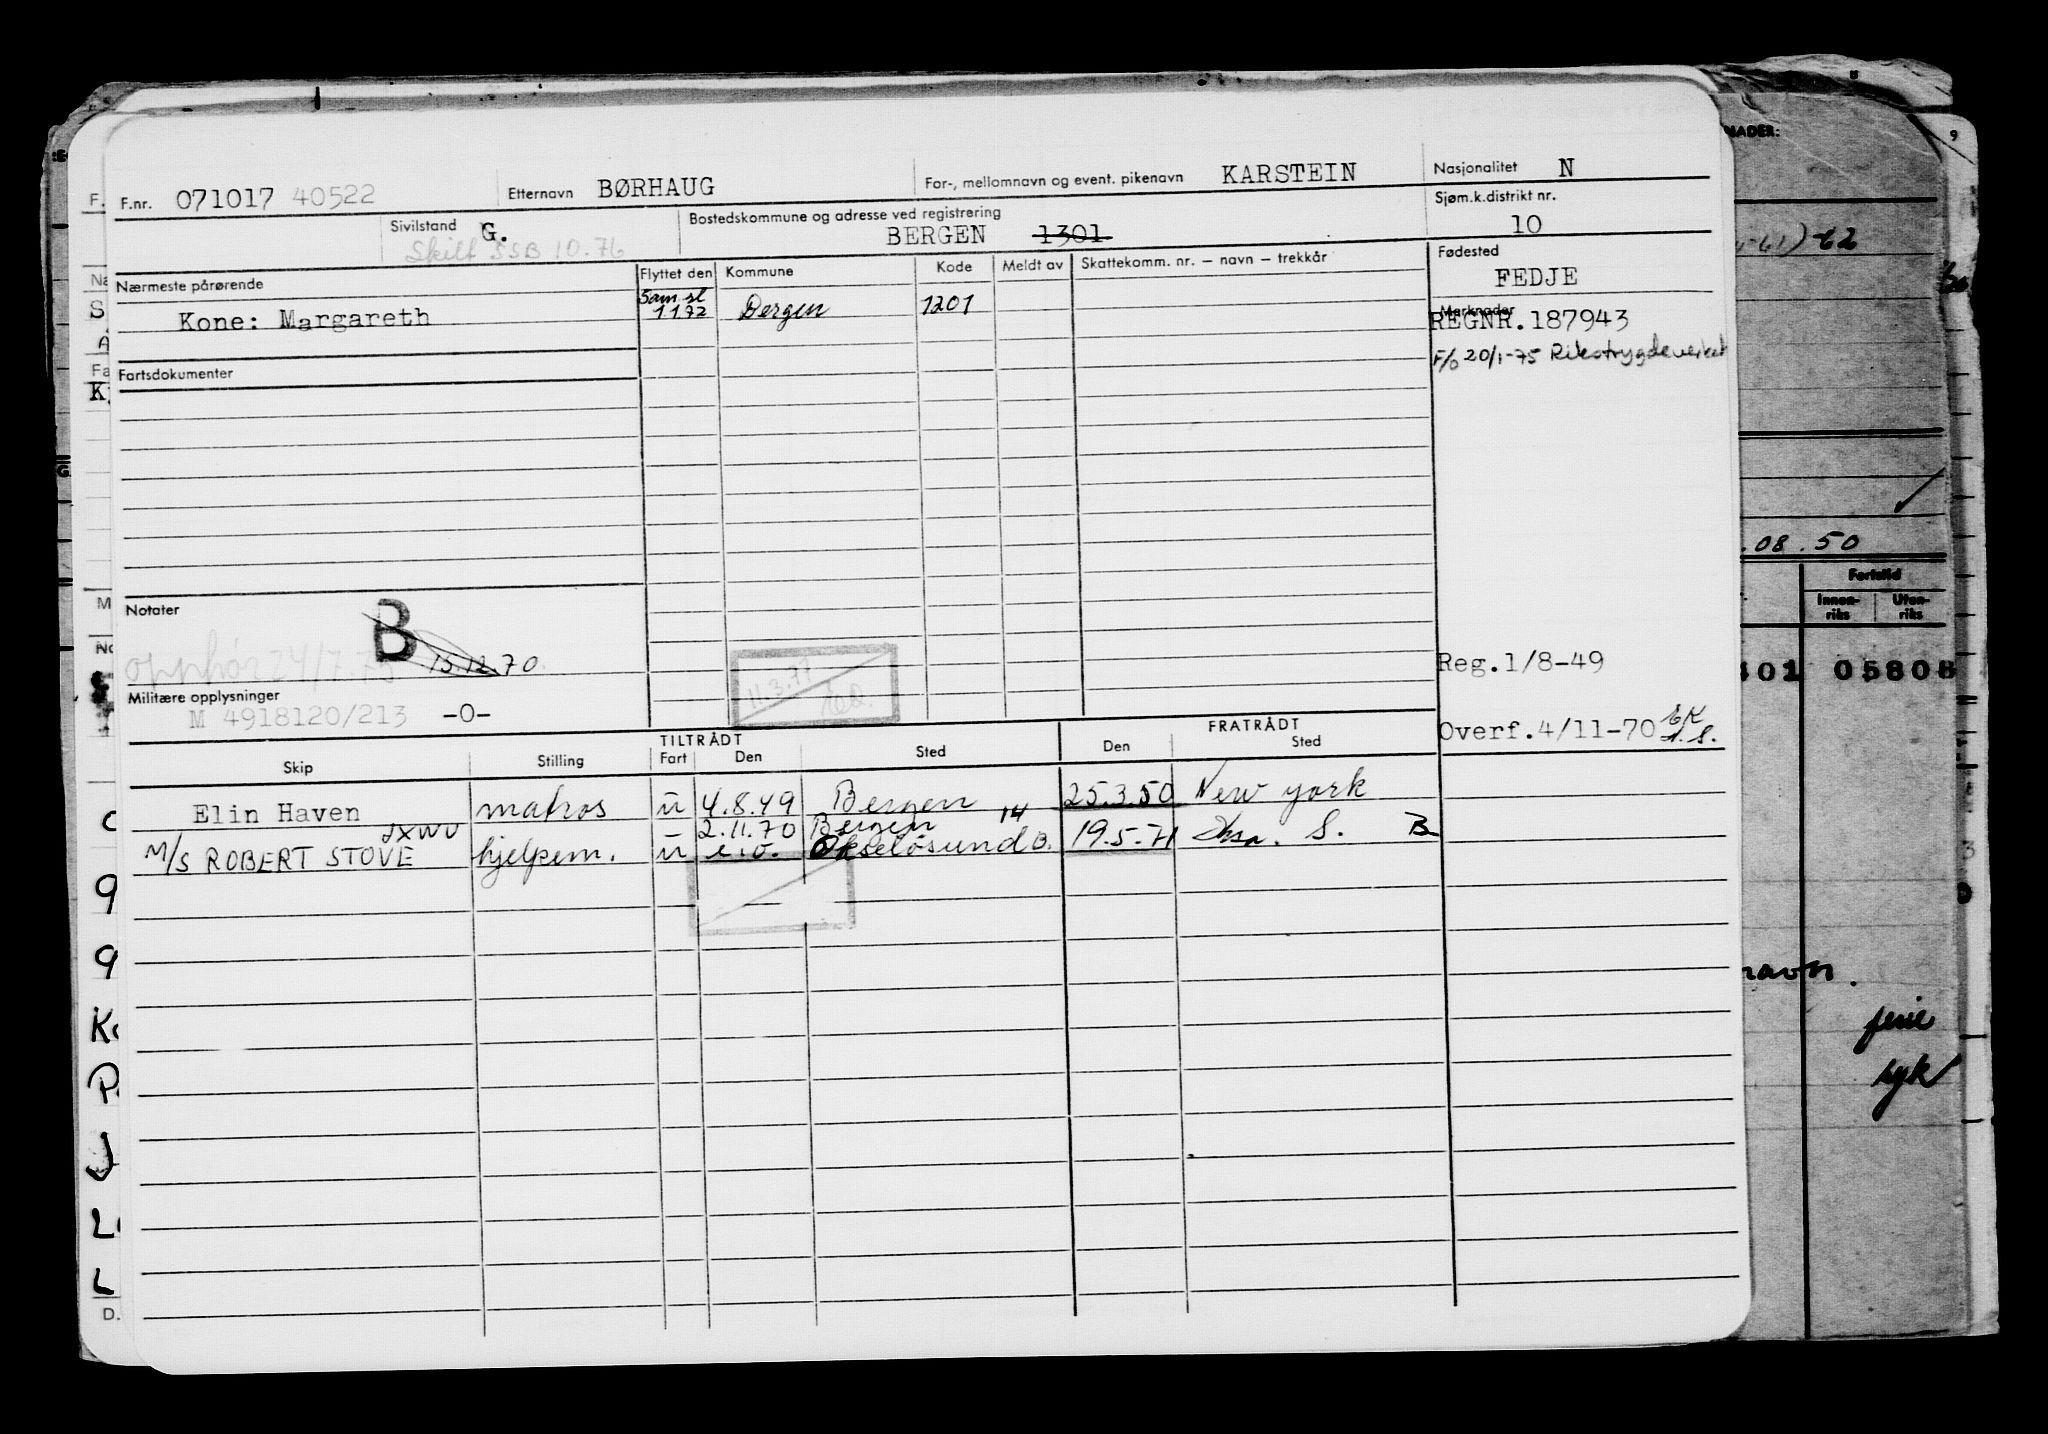 F.nr. 071017 40522 Etternavn BØRHAUG For-, mellomnavn og event. pikenavn KARSTEIN Nasjonalitet N
Sivilstand G. Bostedskommune og adresse ved registrering BERGEN 1301 Sjøm.k.distrikt nr. 10
Skilt SSB 10.76
Nærmeste pårørende Flyttet den Kommune Kode Meldt av Skattekomm. nr. – navn – trekkår Fødested
FEDJE
Kone: Margareth 1172 Bergen 1201
Merknader
REGNR.187943
F/o 20/1-75 Rikstrygdeverket
Fartsdokumenter
Notater
B 15.12.70.
opphør 24/7.
11.3.77
Reg.1/8-49
Militære opplysninger
M 4918120/213 -0-
Overf.4/11-70
TILTRÅDT FRATRÅDT
Skip Stilling Fart Den Sted Den Sted
Elin Haven matros u 4.8.49 Bergen 25.3.50 New York
JXWU 2.11.70 Bergen 14
M/S ROBERT STOVE hjelpem. u Okseløsund B. 19.5.71 S. B
NADER:
9
.08.50
Fartstid
Innen-riks Uten-riks
401 05808
navn.
ferie
syk